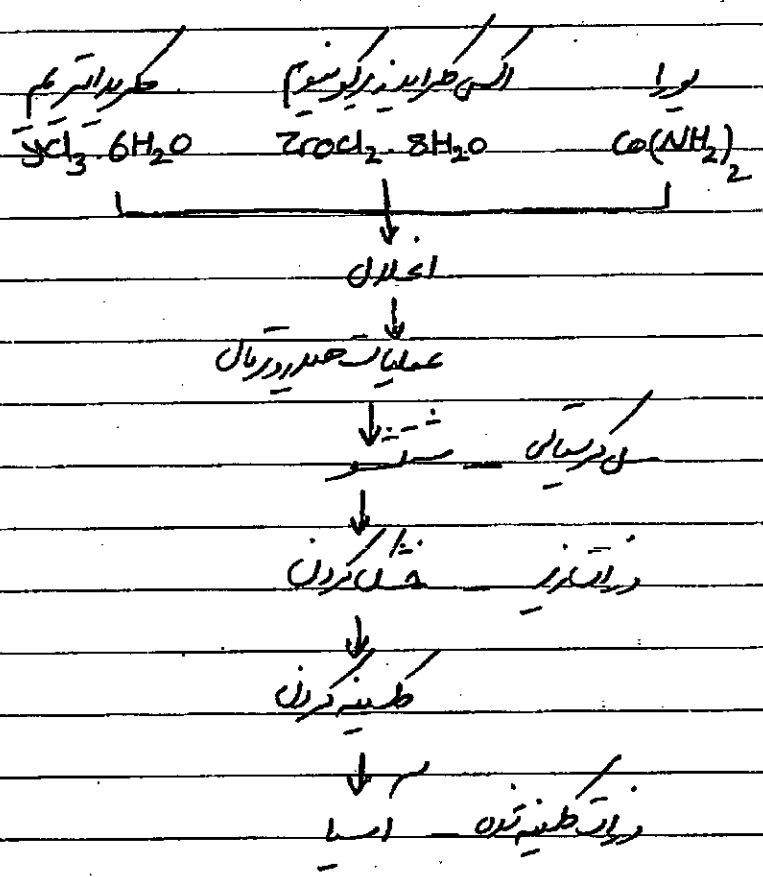 اوره اکسی کلراید زیرکونیوم کلرید ایتریم
Co(NH2)2 ZrOCl2.8H2O yCl3.6H2O
انحلال
عملیات هیدروترمال
سل کریستالی - شستشو
ذرات ریز - خشک کردن
کلسینه کردن
ذرات کلسینه شده - آسیا